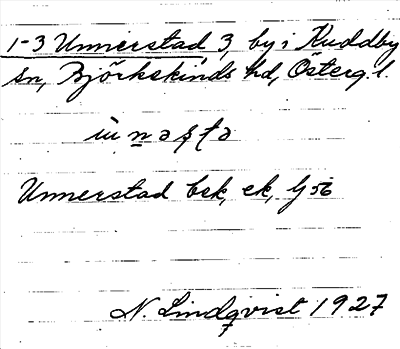 1-3 Unnerstad 3, by i Kuddby
sn, Björkekinds hd, Österg. l.
Unnerstad bsk, ek, Gj 56
N. Lindqvist 1927